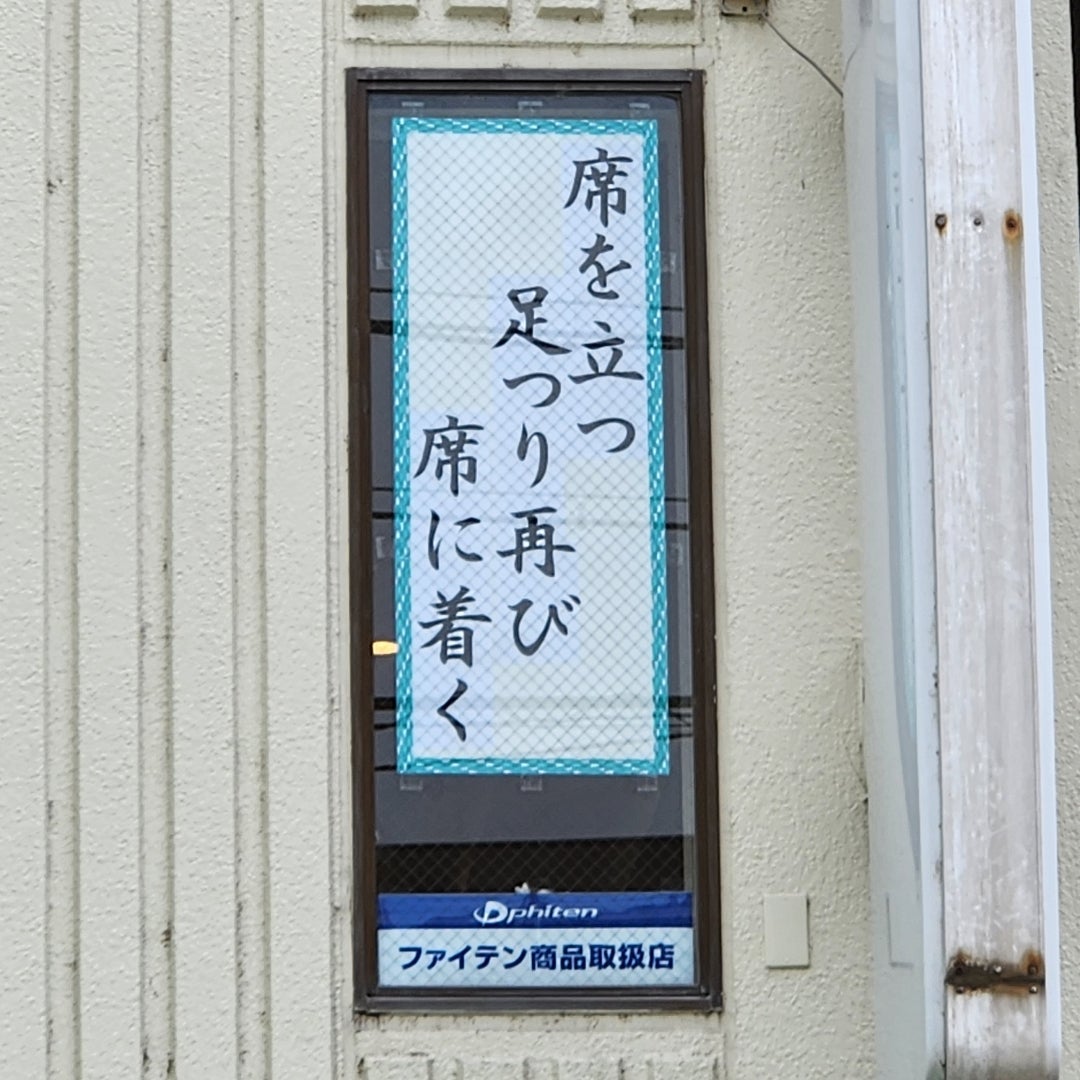 席を立つ
足つり再び
席に着く
phiten
ファイテン商品取扱店